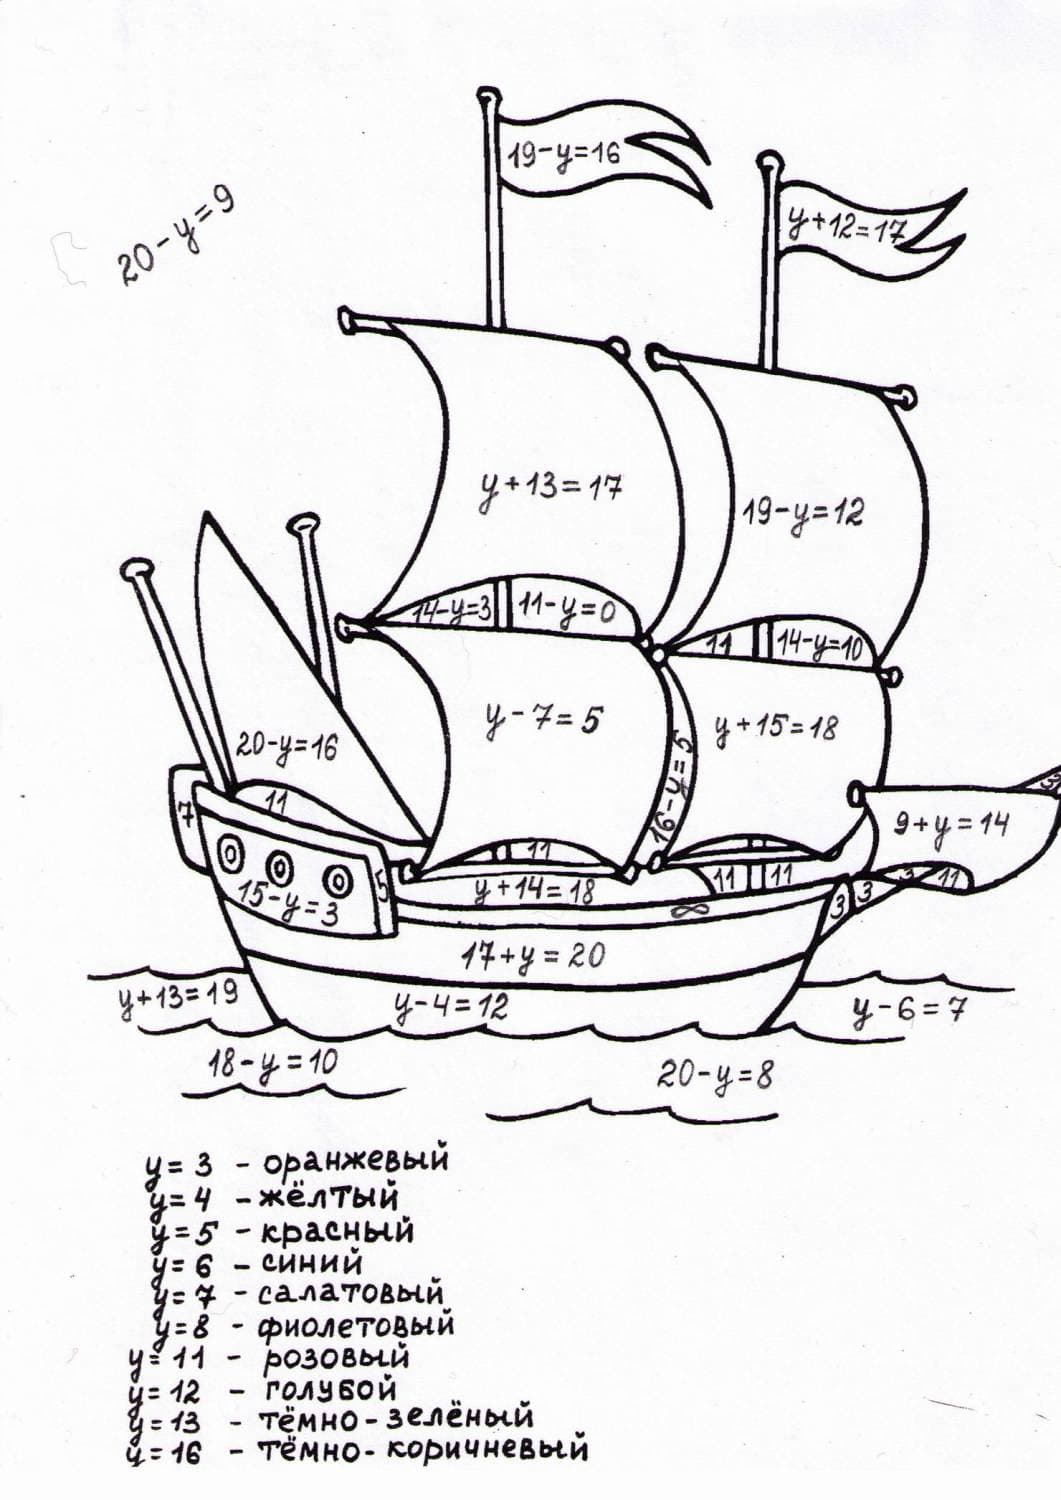 19-y=16
y+12=17
20-y=9
y+13=17
19-y=12
14-y=3
11-y=0
11
14-y=10
y-7=5
y+15=18
20-y=16
16-y=5
3
11
7
9+y=14
11
15-y=3
5
y+14=18
11
11
3
3
3
11
8
17+y=20
y+13=19
y-4=12
y-6=7
18-y=10
20-y=8
y=3 - оранжевый
y=4 - жёлтый
y=5 - красный
y=6 - синий
y=7 - салатовый
y=8 - фиолетовый
y=11 - розовый
y=12 - голубой
y=13 - тёмно-зелёный
y=16 - тёмно-коричневый